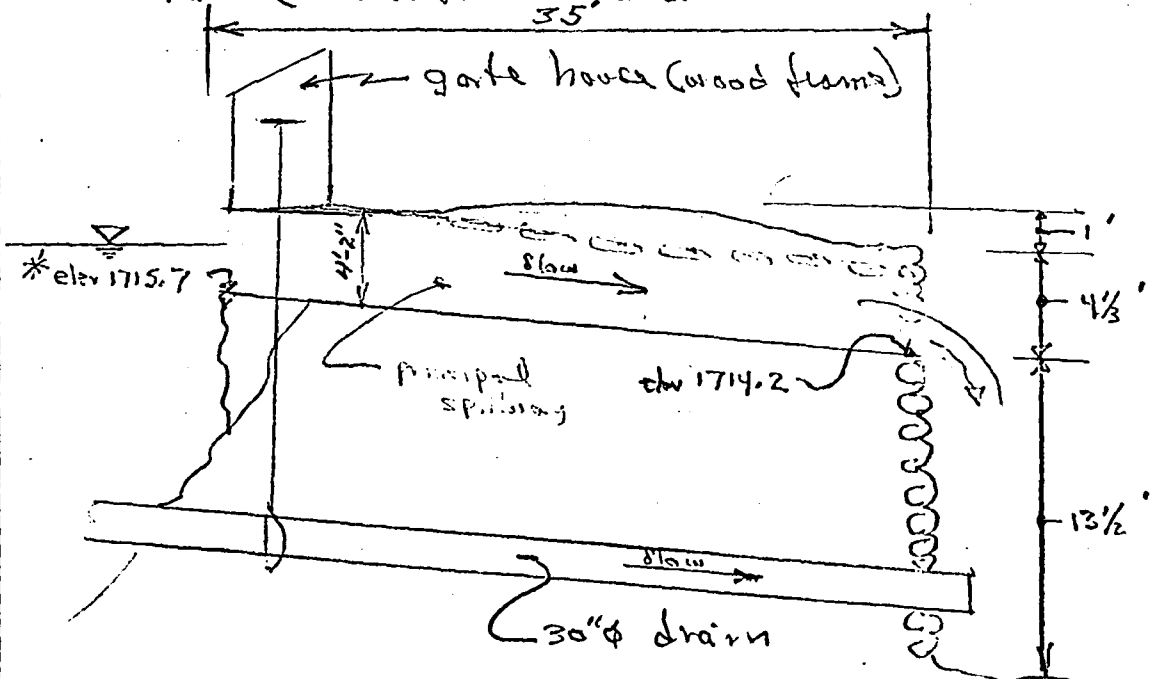 35'
gate house (wood frame)
1'
4'-2"
flow
* elev 1715.7
4⅓'
principal
spillway
elev 1714.2
13½'
flow
30"φ drain